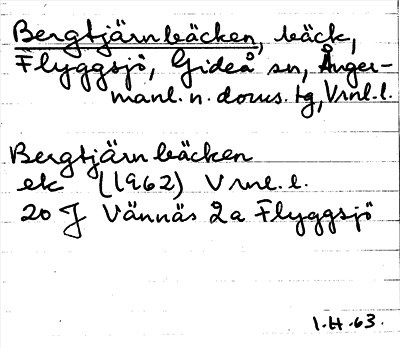 Bergtjärnbäcken, bäck,
Flyggsjö, Gideå sn, Ånger-
manl. n. doms. tg, Vrnl. l.
Bergtjärnbäcken
ek (1962) Vrnl. l.
20 J Vännäs 2a Flyggsjö
1.H.63.